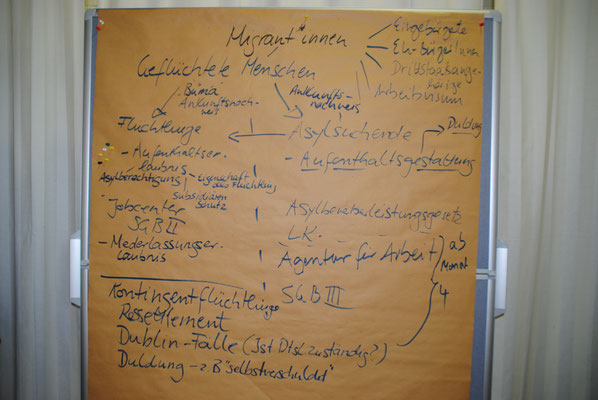 Migrant*innen
Eingebürgerte
EU-Bürger*innen
Drittstaatange-
hörige
Arbeitsvisum
Geflüchtete Menschen
"Büma"
Ankunftsnach-
weis
Ankunfts-
nachweis
Flüchtlinge
Asylsuchende
Duldung
- Aufenthaltser-
laubnis
- Aufenthaltsgestattung
Asylberechtigung
- Eigenschaft
als Flüchtling
subsidiärer
Schutz
- Jobcenter
SGB II
Asylbewerberleistungsgesetz
LK.
- Niederlassungser-
laubnis
Agentur für Arbeit
SGB III
ab
Monat
4
Kontingentflüchtlinge
Resettlement
Dublin-Fälle (Ist Dtsl. zuständig?)
Duldung - z.B "selbstverschuldet"